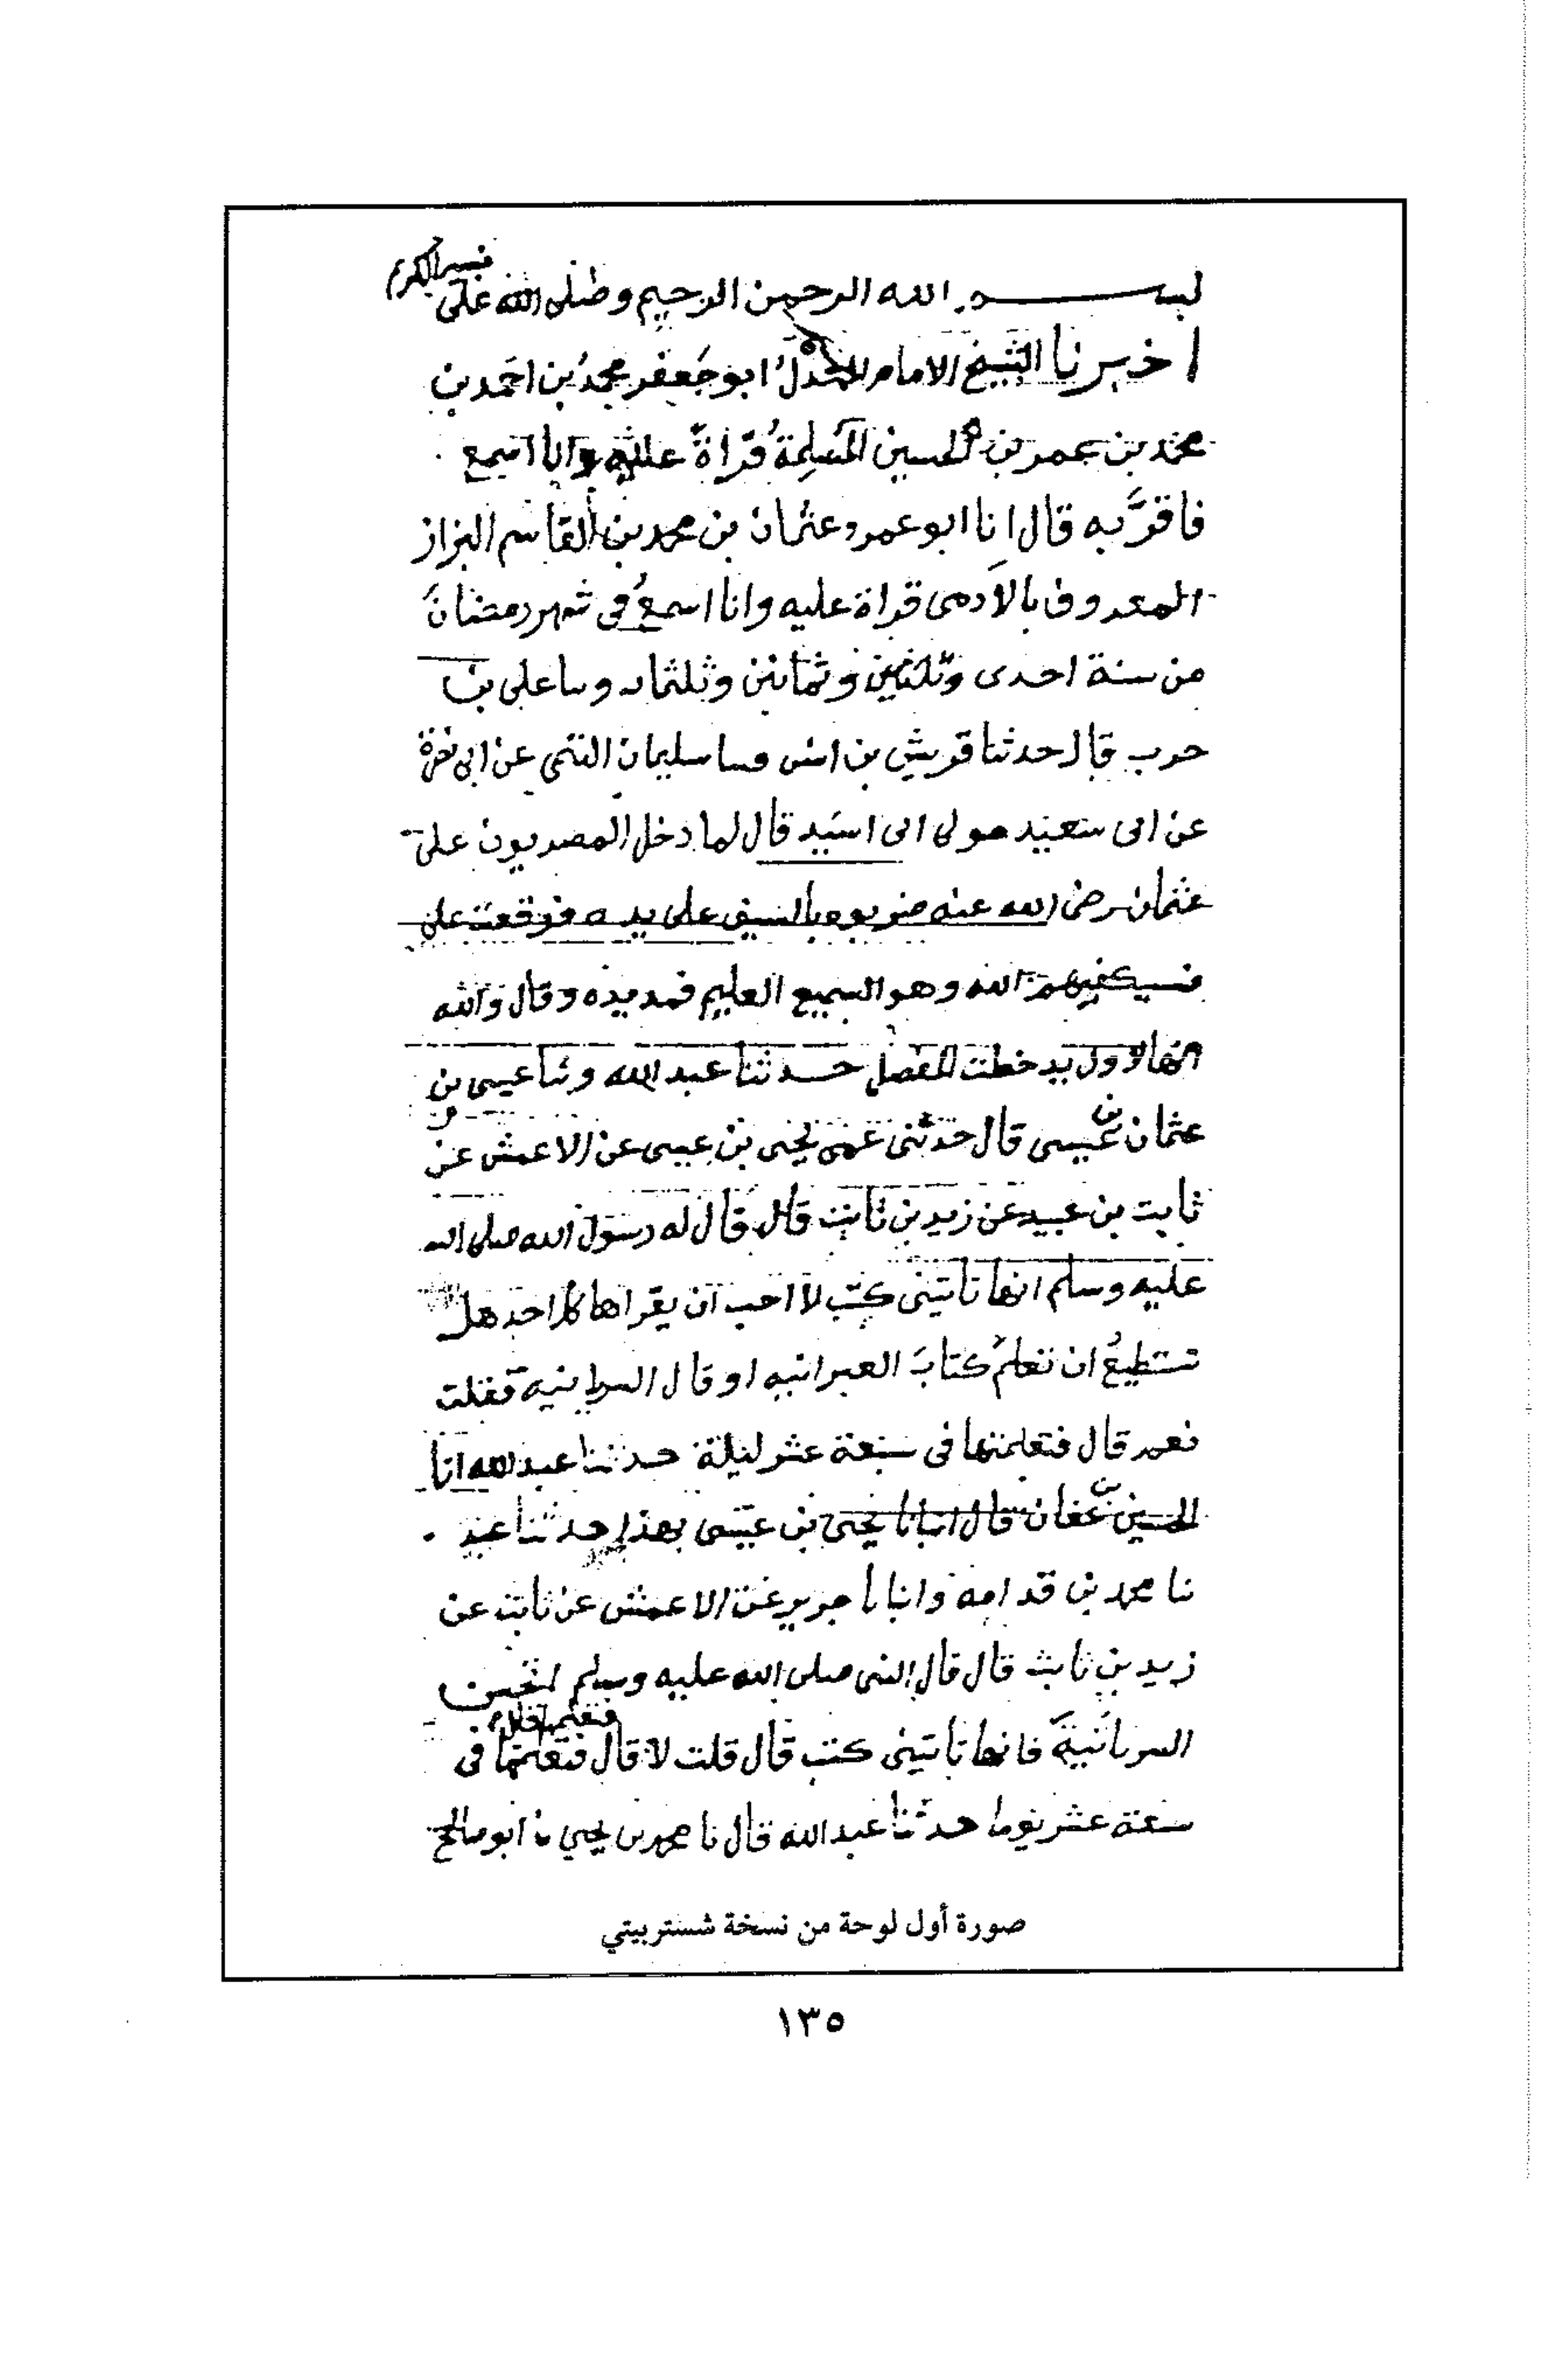 بسم الله الرحمن الرحيم وصلى الله على نبيه الكريم
اخبرنا الشيخ الامام المعدل ابو جعفر محمد بن احمد بن
محمد بن عمر بن الحسين المسلمة قراة عليه وانا اسمع
فاقر به قال انا ابو عمرو عثمان بن محمد بن القاسم البزاز
المعروف بالادمى قراة عليه وانا اسمع فى شهر رمضان
من سنة احدى وثمانين وثلثماىه على بن
حرب قال حدثنا قريش بن انس سليمان التيمى عن ابى نضرة
عن ابى سعيد مولى ابى اسيد قال لما دخل المصريون على
عثمان رضى الله عنه ضربوه بالسيف على يده فوقعت على
فسيكفيهم الله وهو السميع العليم فمد يده وقال والله
انها لاول يد خطت المفصل حدثنا عبد الله وثنا عيسى بن
عثمان بن عيسى قال حدثنى عمى يحيى بن عيسى عن الاعمش عن
ثابت بن عبيد عن زيد بن ثابت قال قال له رسول الله صلى الله
عليه وسلم انها تاتينى كتب لا احب ان يقراها كل احد هل
تستطيع ان تعلم كتاب العبرانيه او قال السريانيه فقلت
نعم قال فتعلمتها فى سبعة عشر ليلة حدثنا عبد الله انا
الحسين بن عفان قال انبانا يحيى بن عيسى بهذا حدثنا عبد
نا محمد بن قدامه وانبانا جرير عن الاعمش عن ثابت عن
زيد بن ثابت قال قال النبى صلى الله عليه وسلم اتحسن
السريانية فانها تاتينى كتب قال قلت لا قال فتعلمها قال فتعلمتها فى
سبعة عشر يوما حدثنا عبد الله قال نا محمد بن يحيي نا ابو صالح
صورة أول لوحة من نسخة شستربيتي
١٣٥